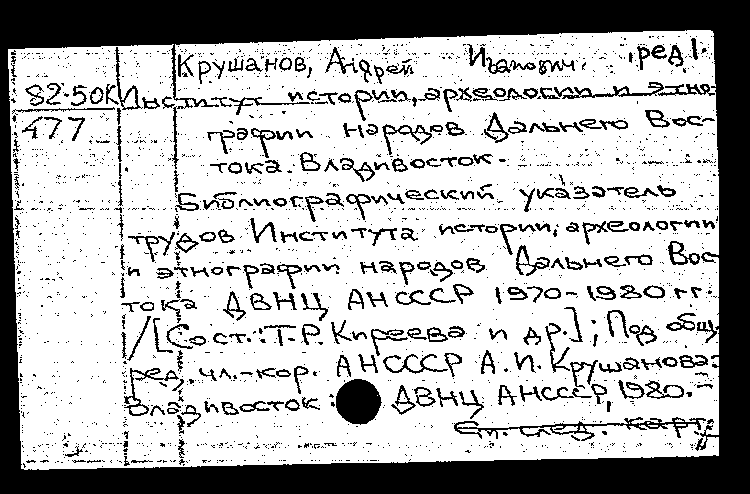 Крушанов, Андрей Иванович. ред.
82.50К Институт истории, археологии и этно-
477 графии народов Дальнего Вос-
тока. Владивосток.
Библиографический указатель
трудов Института истории, археологии
и этнографии народов Дальнего Вос-
тока ДВНЦ АН СССР 1970-1980 гг.
/[Сост.: Т.Р. Киреева и др.]; Под общ.
ред. чл.-кор. АН СССР А.И. Крушанова.
Владивосток: ДВНЦ АН СССР, 1980.-
См. след. карт.